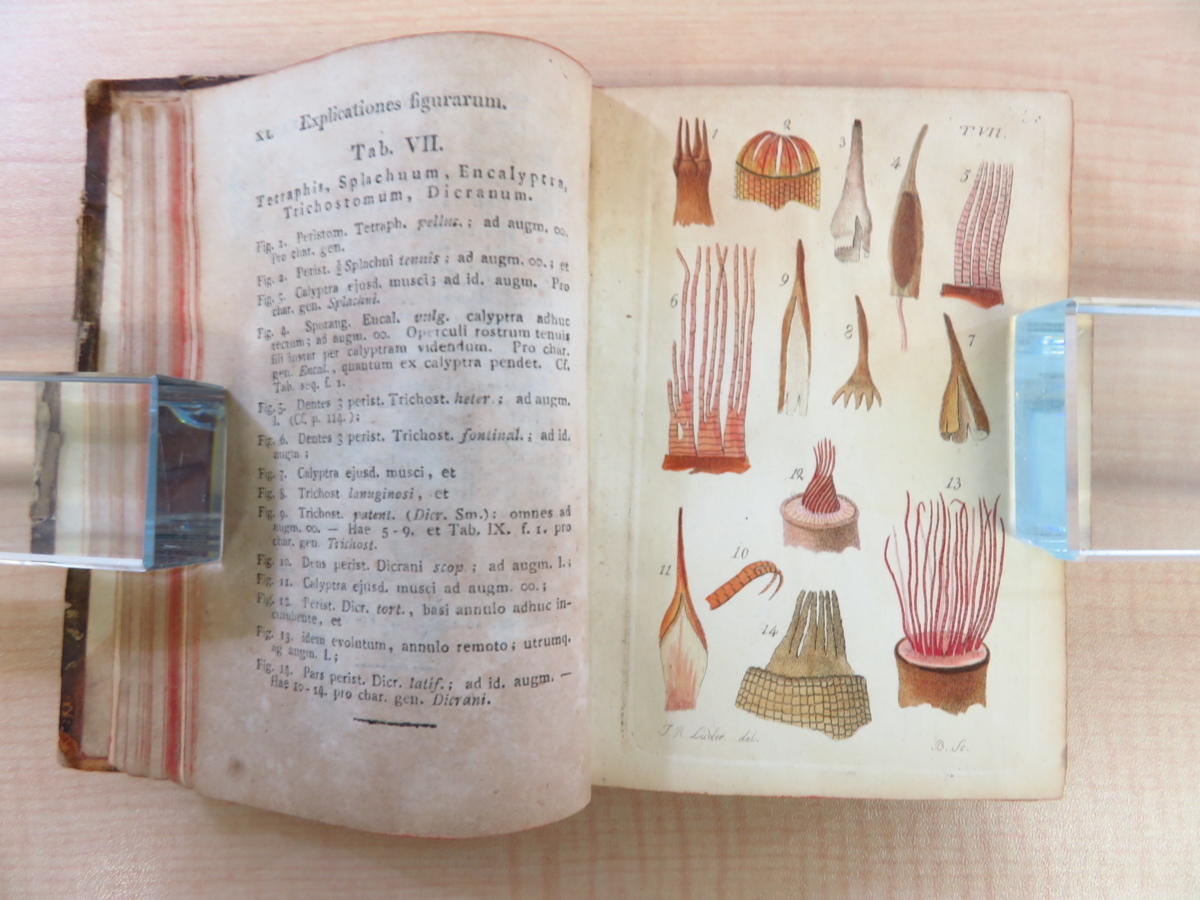 XL Explicationes figurarum.
Tab. VII.
Tetraphis, Splachnum, Encalypta,
Trichostomum, Dicranum.
Fig. 1. Peristom. Tetraph. pelluc.; ad augm. oo.
Pro char. gen.
Fig. 2. Perist. Splachni tenuis; ad augm. oo.; et
Fig. 3. Calyptra ejusd. musci; ad id. augm. Pro
char. gen. Splachni.
Fig. 4. Sporang. Encal. vulg. calyptra adhuc
tectum; ad augm. oo. Operculi rostrum tenuis
fili instar per calyptram videndum. Pro char.
gen. Encal., quantum ex calyptra pendet. Cf.
Tab. seq. f. 1.
Fig. 5. Dentes 3 perist. Trichost. heter.; ad augm.
l. (Cf. p. 114.);
Fig. 6. Dentes 3 perist. Trichost. fontinal.; ad id.
augm.;
Fig. 7. Calyptra ejusd. musci, et
Fig. 8. Trichost lanuginosi, et
Fig. 9. Trichost. patent. (Dicr. Sm.); omnes ad
augm. oo. — Hae 5-9. et Tab. IX. f. 1. pro
char. gen. Trichost.
Fig. 10. Dens perist. Dicrani scop.; ad augm. l.;
Fig. 11. Calyptra ejusd. musci ad augm. oo.;
Fig. 12. Perist. Dicr. tort., basi annulo adhuc in-
cumbente, et
Fig. 13. idem evolutum, annulo remoto; utrumq.
ad augm. l.;
Fig. 14. Pars perist. Dicr. latif.; ad id. augm. —
Hae 10-14. pro char. gen. Dicrani.
T. VII.
1
2
3
4
5
6
9
8
7
12
13
11
10
14
del.
B. Sc.